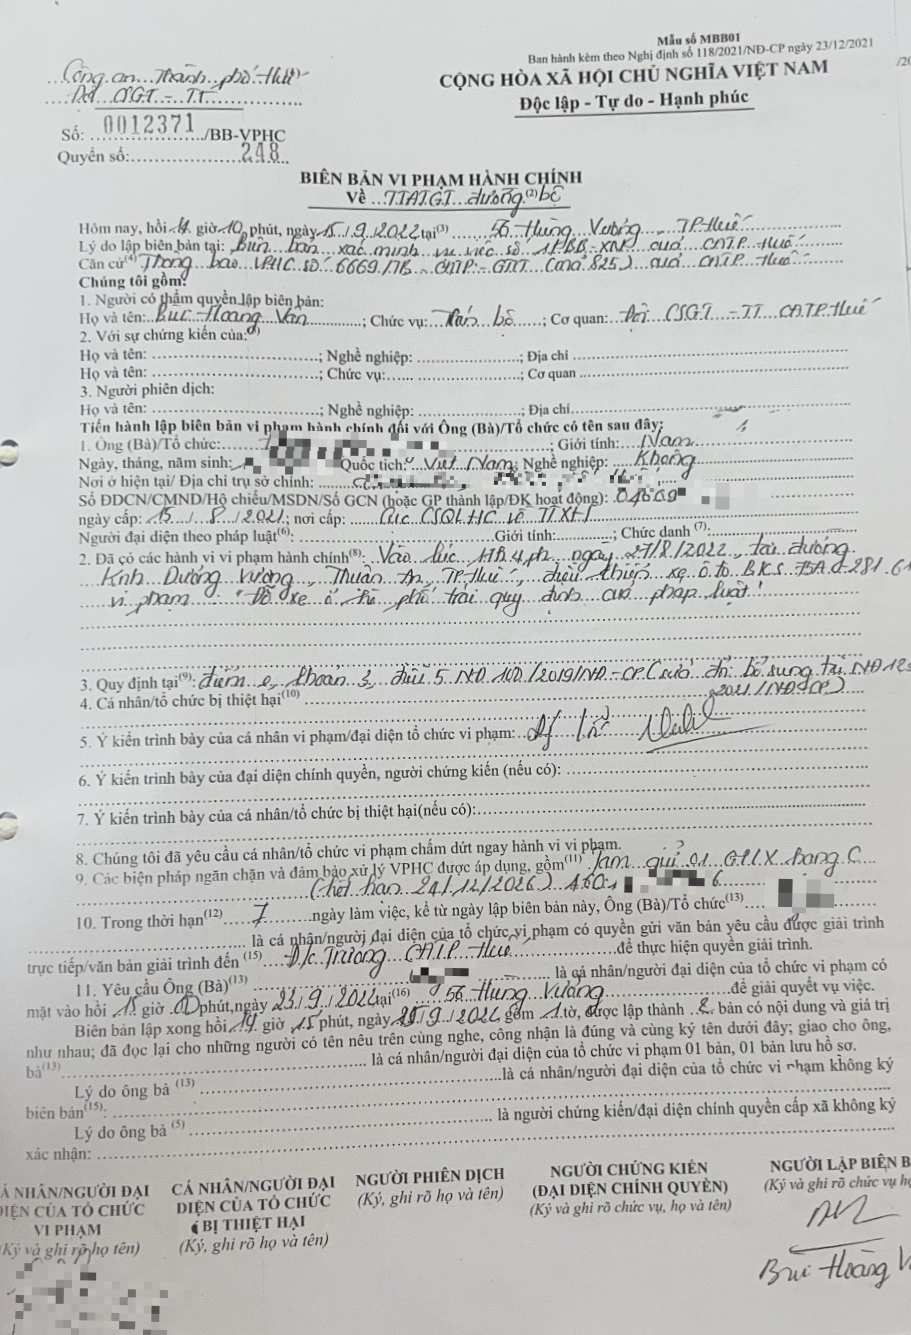 Mẫu số MBB01
Ban hành kèm theo Nghị định số 118/2021/NĐ-CP ngày 23/12/2021
Công an Thành phố Huế
Đội CSGT - TT
CỘNG HÒA XÃ HỘI CHỦ NGHĨA VIỆT NAM
Độc lập - Tự do - Hạnh phúc
Số: 0012371 /BB-VPHC
Quyển số: 248
BIÊN BẢN VI PHẠM HÀNH CHÍNH
Về TTATGT đường (2) bộ
Hôm nay, hồi giờ 10 phút, ngày 15/9/2022 tại(3) 56 Hùng Vương, TP Huế
Lý do lập biên bản tại: Biên bản xác minh vụ việc số /BB-XM của CATP Huế
Căn cứ(4) Thông báo VPHC số 6669/TB-CATP-GTTT của CATP Huế
Chúng tôi gồm:
1. Người có thẩm quyền lập biên bản:
Họ và tên: Bùi Hoàng Văn; Chức vụ: Cán bộ; Cơ quan: Đội CSGT - TT CATP Huế
2. Với sự chứng kiến của:
Họ và tên: ; Nghề nghiệp: ; Địa chỉ
Họ và tên: ; Chức vụ: ; Cơ quan
3. Người phiên dịch:
Họ và tên: ; Nghề nghiệp: ; Địa chỉ
Tiến hành lập biên bản vi phạm hành chính đối với Ông (Bà)/Tổ chức có tên sau đây:
1. Ông (Bà)/Tổ chức: ; Giới tính: Nam
Ngày, tháng, năm sinh: Quốc tịch: Việt Nam; Nghề nghiệp: Không
Nơi ở hiện tại/ Địa chỉ trụ sở chính:
Số ĐDCN/CMND/Hộ chiếu/MSDN/Số GCN (hoặc GP thành lập/ĐK hoạt động):
ngày cấp: 15/8/2021; nơi cấp: Cục CSQLHC về TTXH
Người đại diện theo pháp luật(6): Giới tính: ; Chức danh (7):
2. Đã có các hành vi vi phạm hành chính(8): Vào lúc ngày 27/8/2022, tại đường
Kinh Dương Vương, Thuận An, TP Huế, điều khiển xe ô tô BKS 75A-281.61
vi phạm: "Đỗ xe ở hè phố trái quy định của pháp luật"
3. Quy định tại(9): điểm e, khoản 3, điều 5 NĐ 100/2019/NĐ-CP (sửa đổi bổ sung tại NĐ 123
2021/NĐ-CP)
4. Cá nhân/tổ chức bị thiệt hại(10)
5. Ý kiến trình bày của cá nhân vi phạm/đại diện tổ chức vi phạm:
6. Ý kiến trình bày của đại diện chính quyền, người chứng kiến (nếu có):
7. Ý kiến trình bày của cá nhân/tổ chức bị thiệt hại(nếu có):
8. Chúng tôi đã yêu cầu cá nhân/tổ chức vi phạm chấm dứt ngay hành vi vi phạm.
9. Các biện pháp ngăn chặn và đảm bảo xử lý VPHC được áp dụng, gồm(11) Tạm giữ 01 GPLX hạng C
(hết hạn 24/12/2026)
10. Trong thời hạn(12) 7 ngày làm việc, kể từ ngày lập biên bản này, Ông (Bà)/Tổ chức(13)
là cá nhân/người đại diện của tổ chức vi phạm có quyền gửi văn bản yêu cầu được giải trình
trực tiếp/văn bản giải trình đến (15) Đ/c Trưởng CATP Huế để thực hiện quyền giải trình.
11. Yêu cầu Ông (Bà)(13) là cá nhân/người đại diện của tổ chức vi phạm có
mặt vào hồi 15 giờ phút, ngày 23/9/2022 tại(16) 56 Hùng Vương để giải quyết vụ việc.
Biên bản lập xong hồi giờ 15 phút, ngày /9/2022 gồm 1 tờ, được lập thành 2 bản có nội dung và giá trị
như nhau; đã đọc lại cho những người có tên nêu trên cùng nghe, công nhận là đúng và cùng ký tên dưới đây; giao cho ông,
bà(13) là cá nhân/người đại diện của tổ chức vi phạm 01 bản, 01 bản lưu hồ sơ.
Lý do ông bà (13) là cá nhân/người đại diện của tổ chức vi phạm không ký
biên bản(15):
Lý do ông bà (5) là người chứng kiến/đại diện chính quyền cấp xã không ký
xác nhận:
Á NHÂN/NGƯỜI ĐẠI
DIỆN CỦA TỔ CHỨC
VI PHẠM
(Ký và ghi rõ họ tên)
CÁ NHÂN/NGƯỜI ĐẠI
DIỆN CỦA TỔ CHỨC
BỊ THIỆT HẠI
(Ký, ghi rõ họ và tên)
NGƯỜI PHIÊN DỊCH
(Ký, ghi rõ họ và tên)
NGƯỜI CHỨNG KIẾN
(ĐẠI DIỆN CHÍNH QUYỀN)
(Ký, ghi rõ chức vụ, họ và tên)
NGƯỜI LẬP BIÊN B
(Ký và ghi rõ chức vụ họ
Bùi Hoàng V